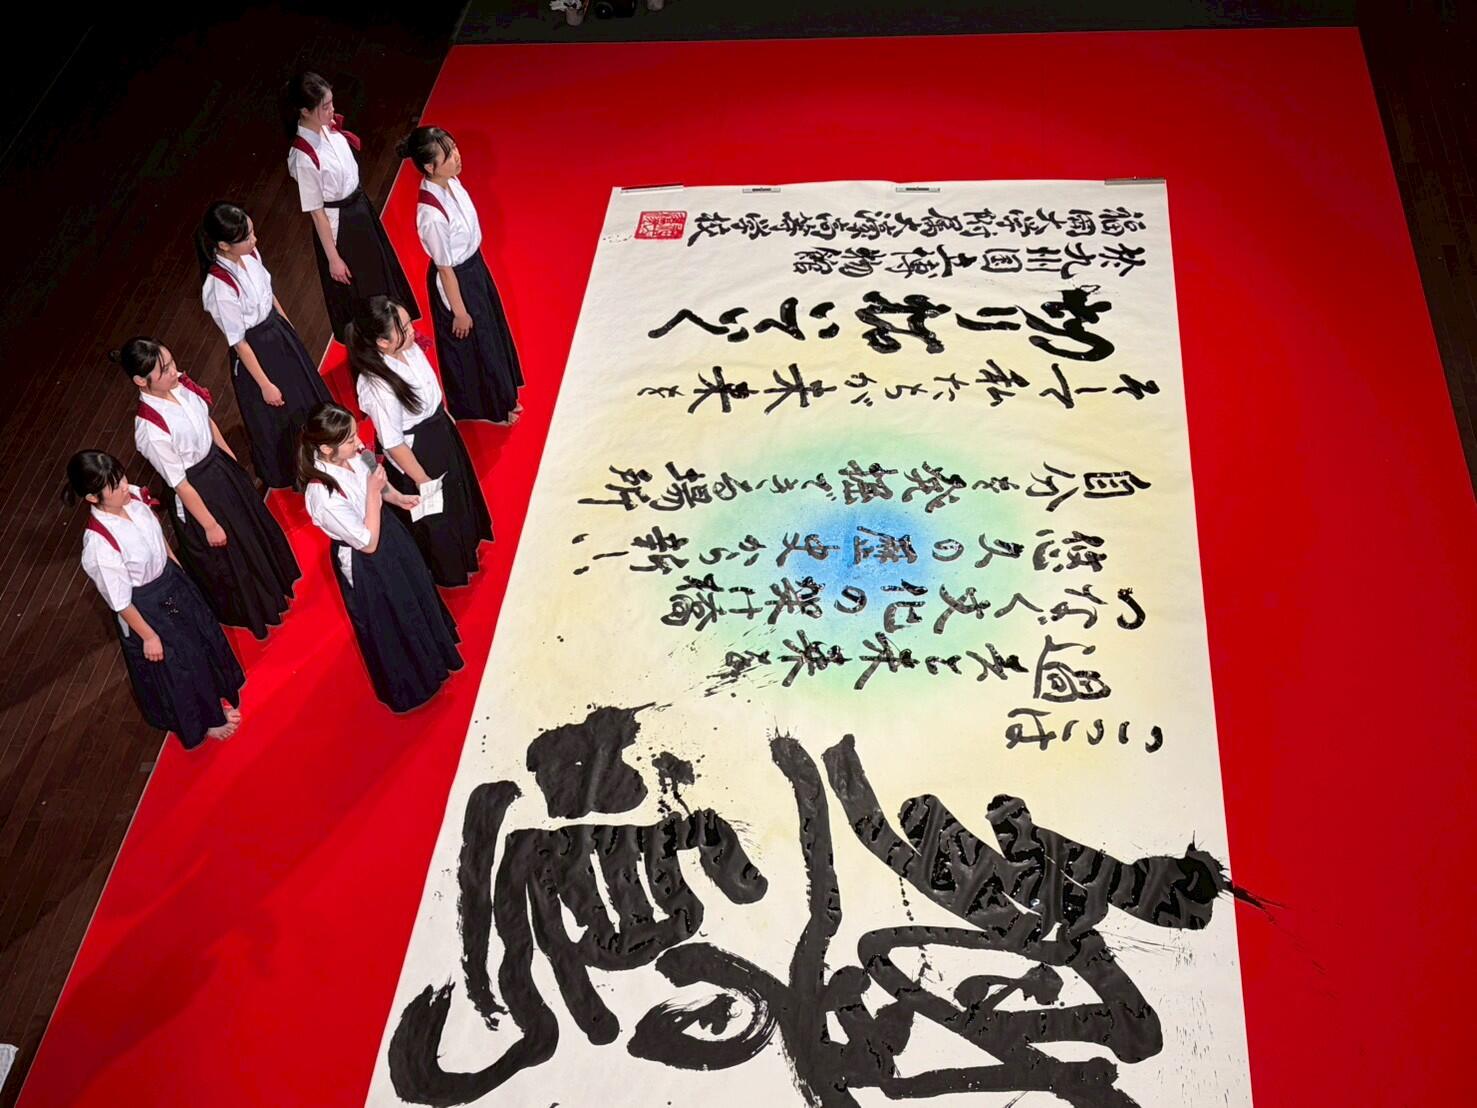 ここは
過去と未来を
つなぐ文化の架け橋
悠久の歴史から新しい
自分を発掘できる場所
そして私たちが未来を
切り拓いていく
於九州国立博物館
福岡大学附属大濠高等学校